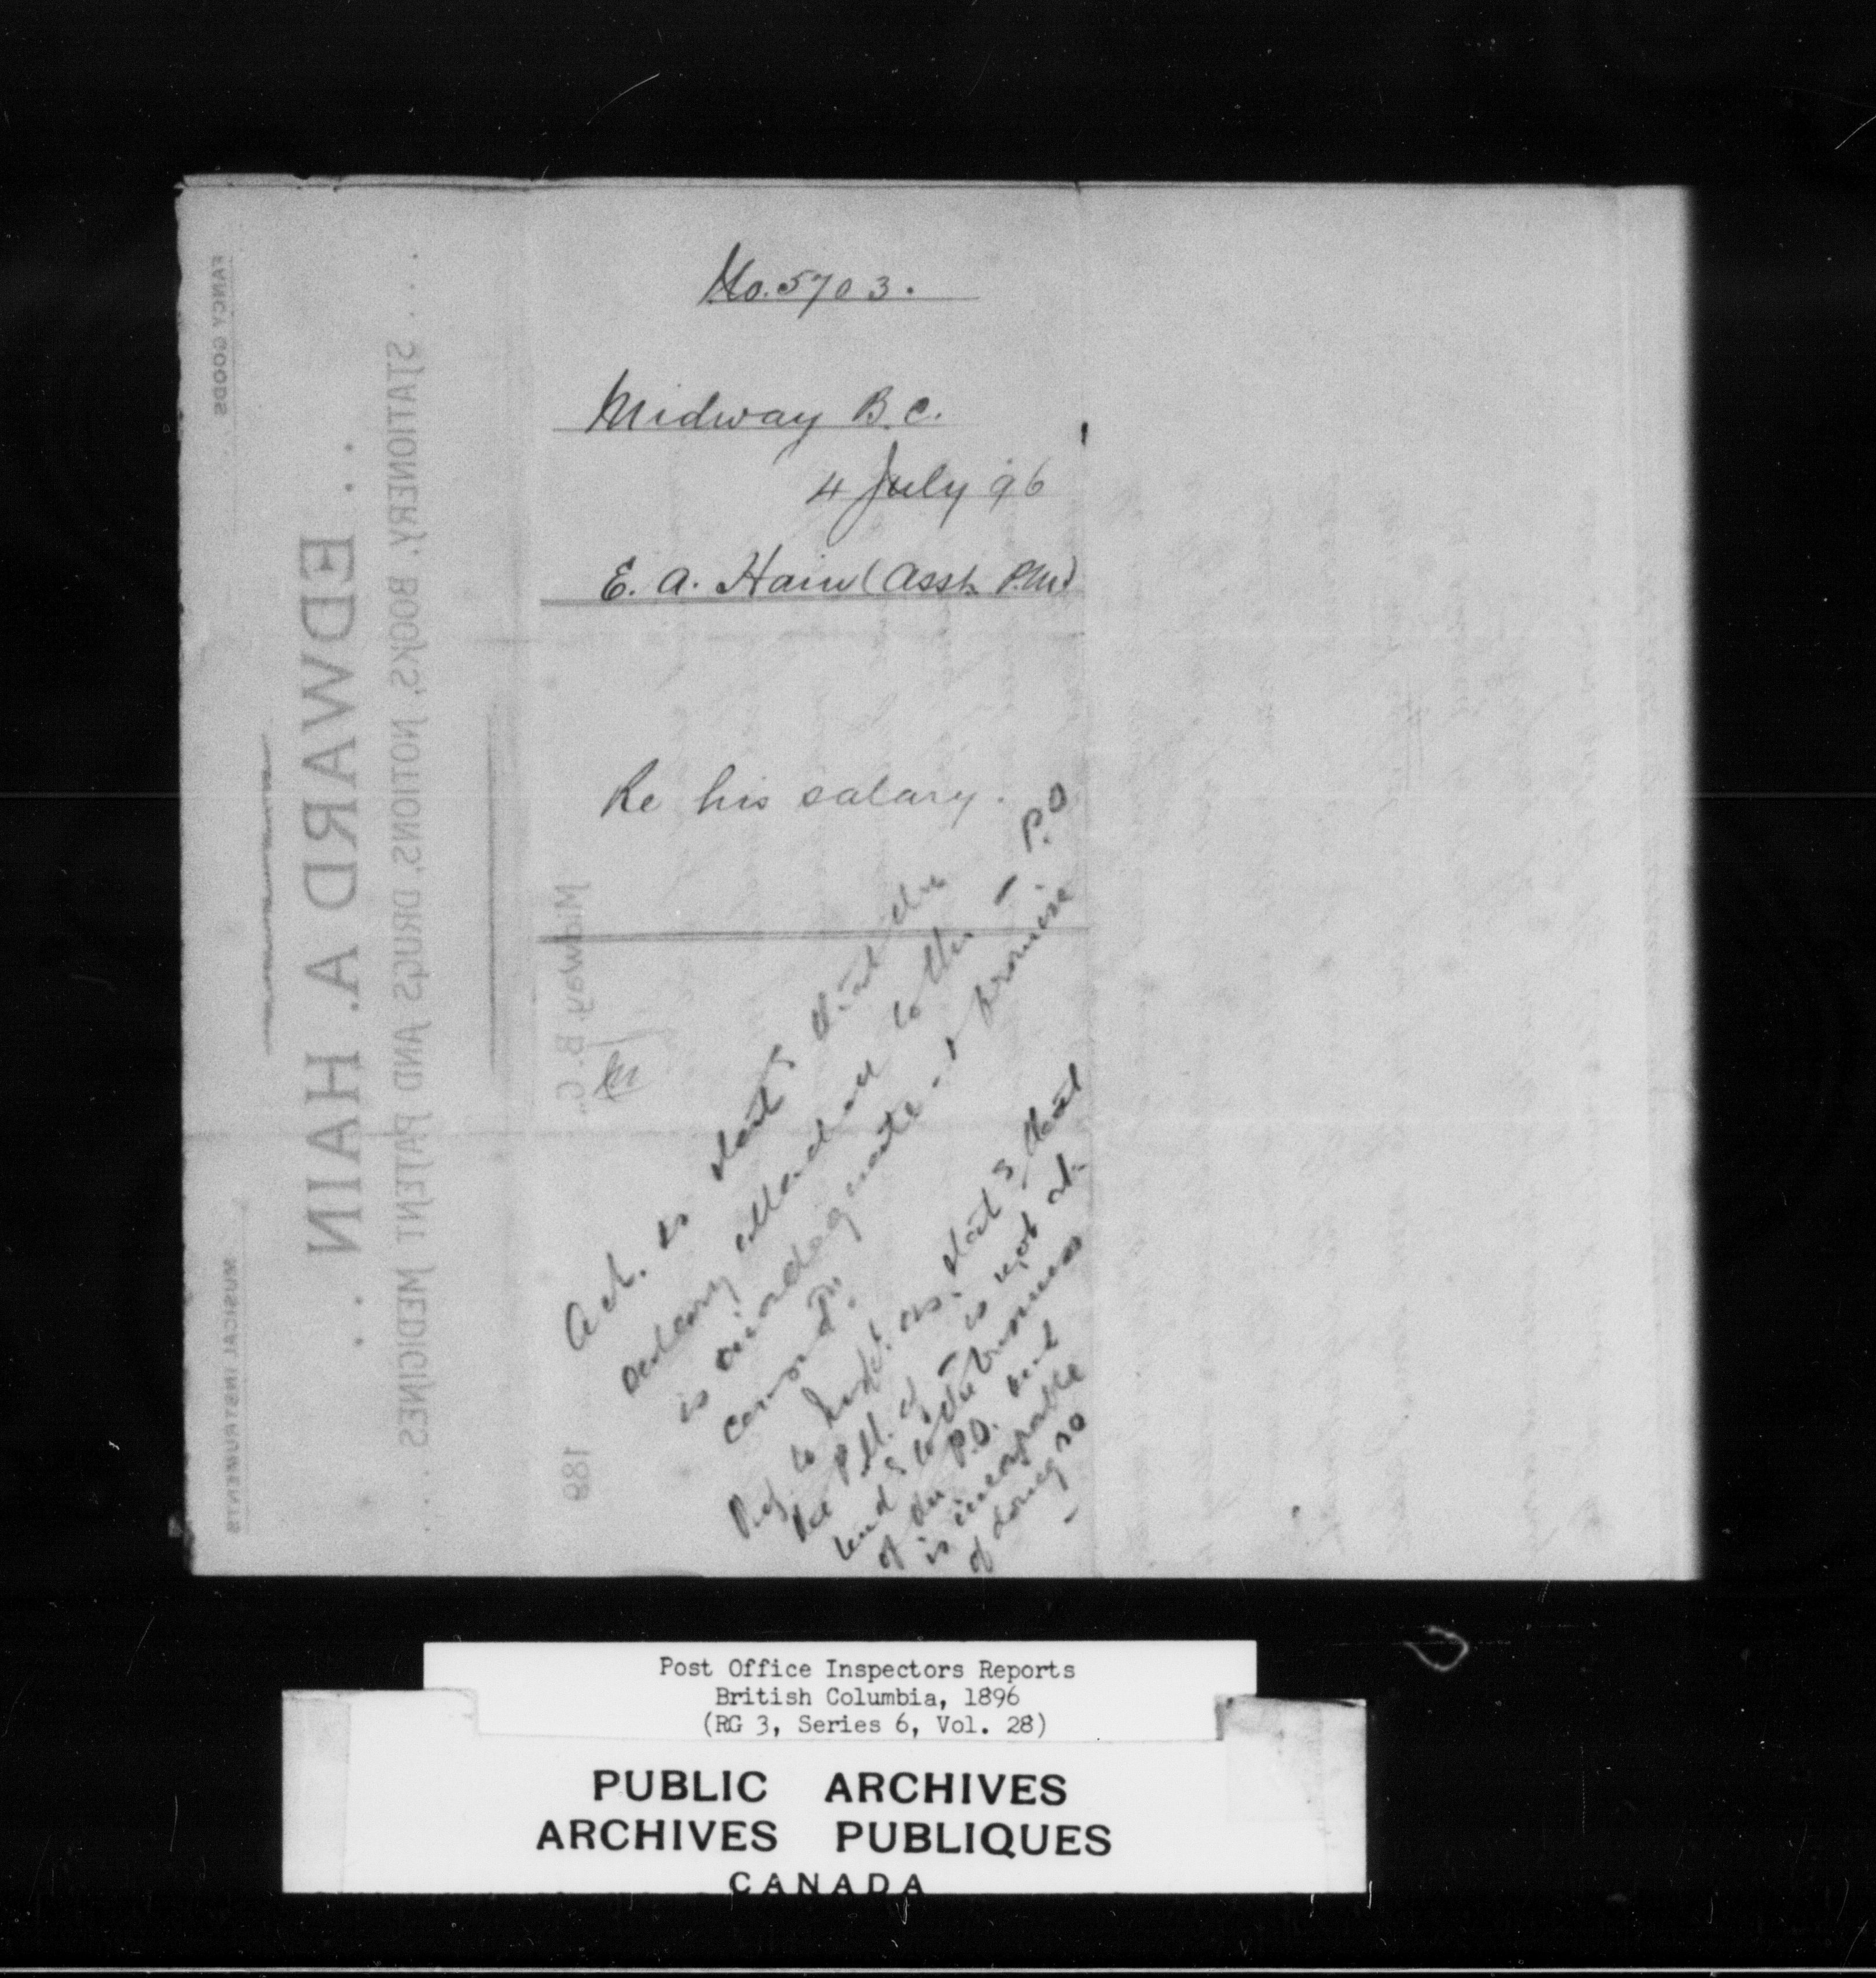 No. 5703.
Midway B.C.
4 July 96
E. A. Hain (Asst. P.M.)
Re his salary.
Ack. & stat^g that the
salary attached to the – P.O
is inadequate - & promise
consdn.
Ref. to Inspt. as. stat^g that
the P.M. of – is not at-
tend^g to the business
of the P.O. and
is incapable
of doing so
–
FANCY GOODS
EDWARD A. HAIN
STATIONERY, BOOKS, NOTIONS, DRUGS AND PATENT MEDICINES
MUSICAL INSTRUMENTS
Midway, B. C.,
189
Post Office Inspectors Reports
British Columbia, 1896
(RG 3, Series 6, Vol. 28)
PUBLIC ARCHIVES
ARCHIVES PUBLIQUES
CANADA